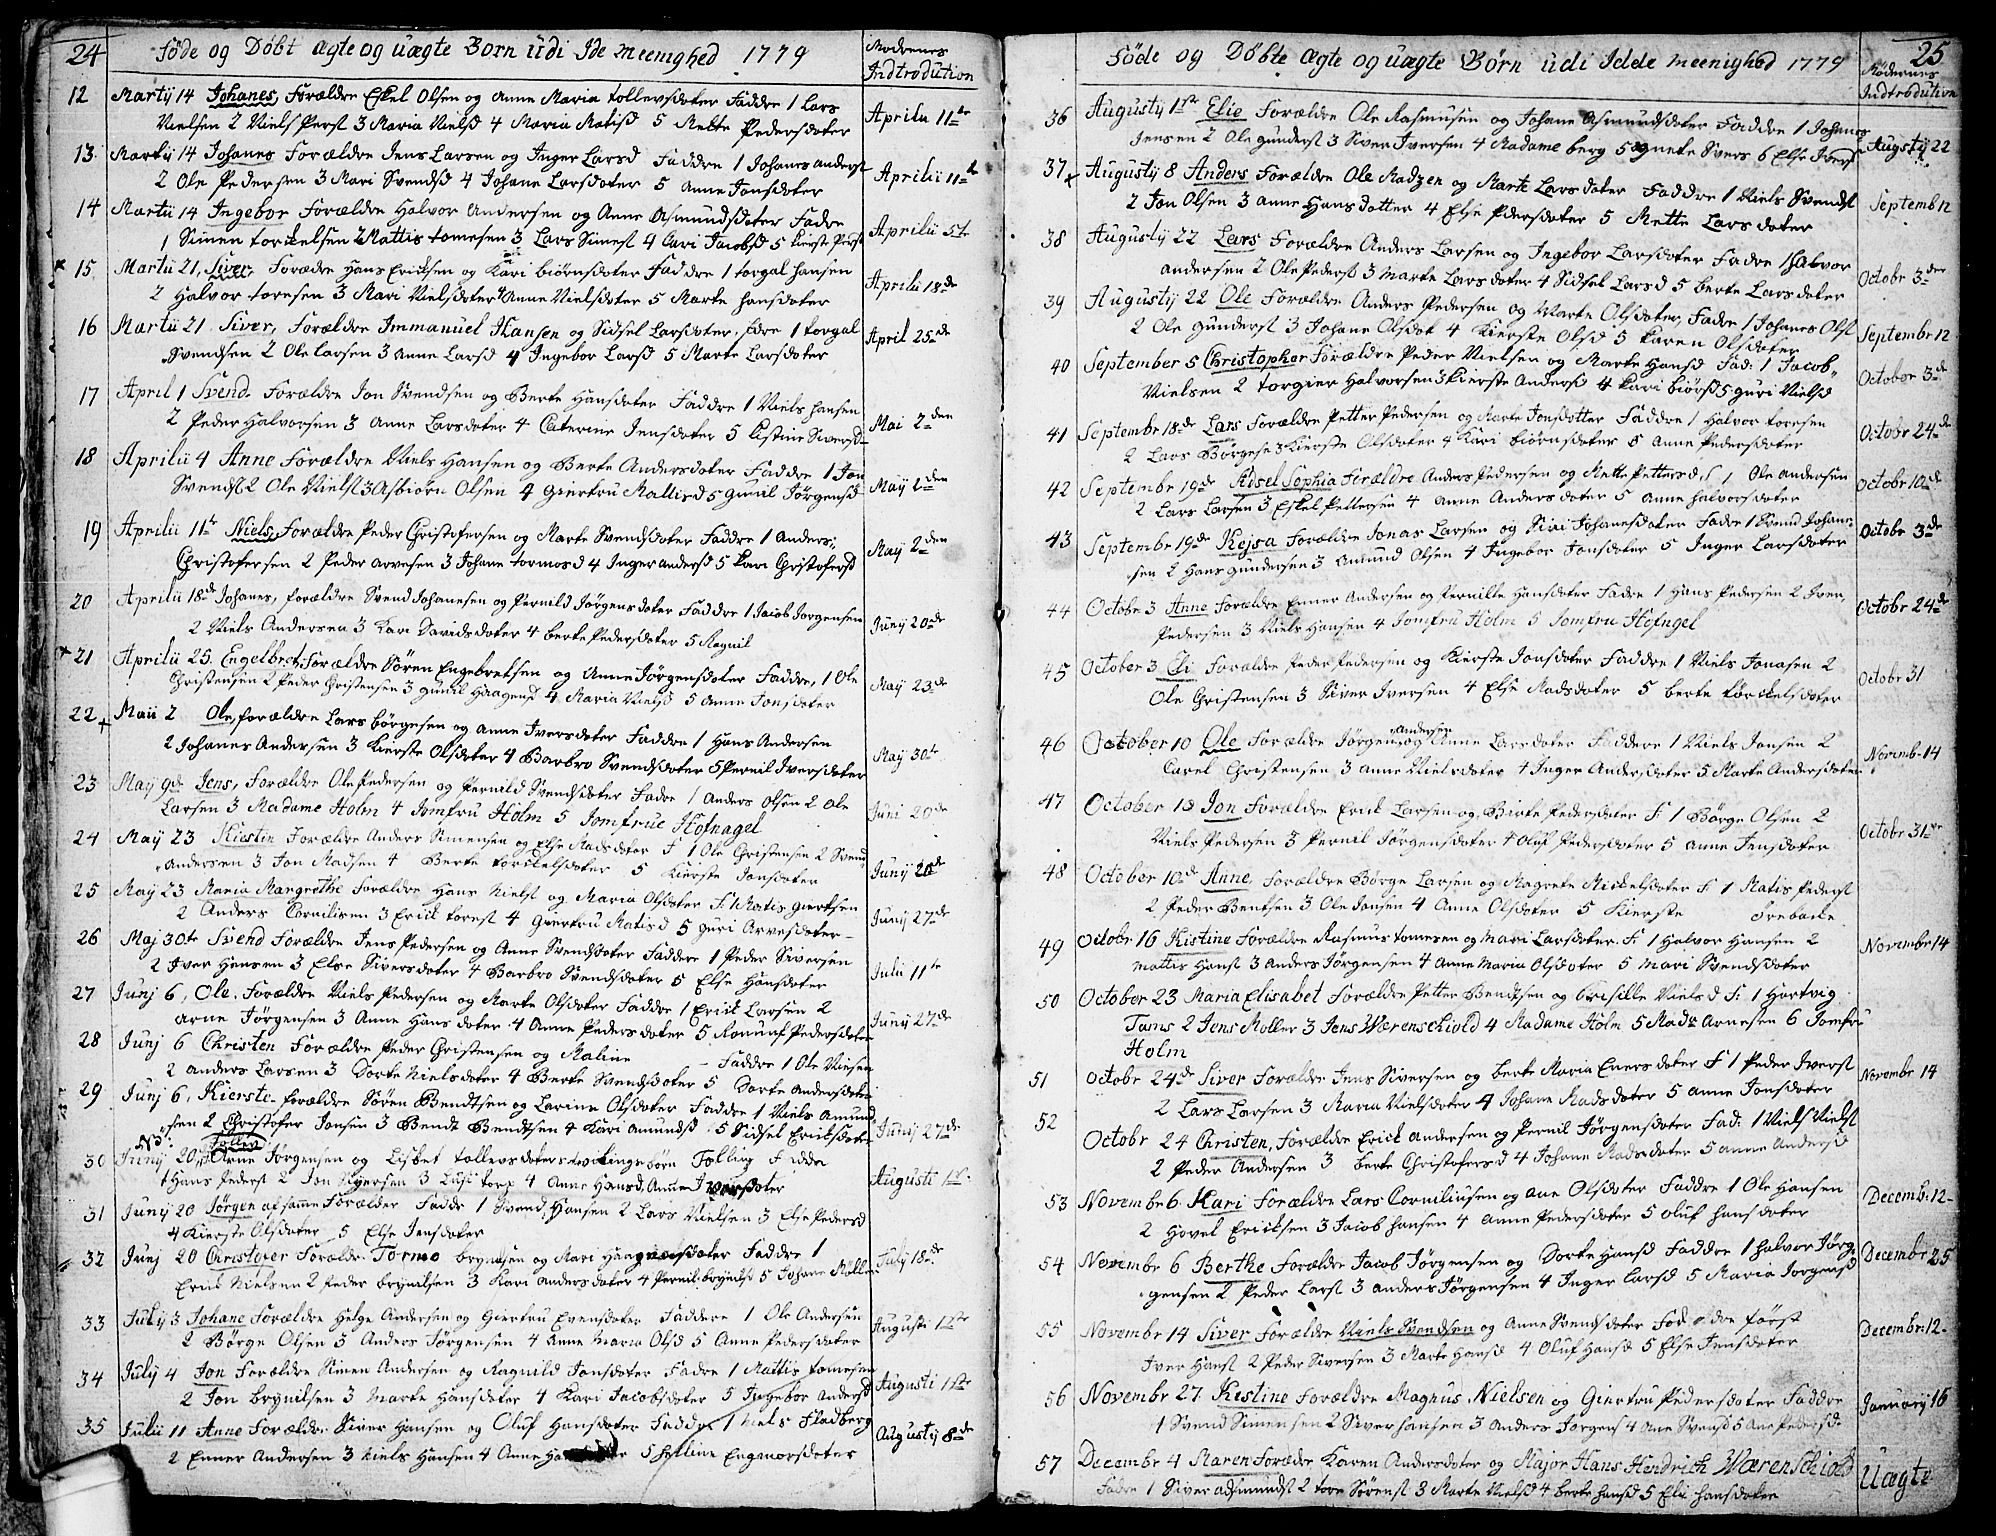 24
Föde og Döbt ægte og uægte Born udi Ide Meenighed 1779
Modrenes
Indtrodution
12 Martij 14 Johanes, Forældre Eskel Olsen og Anne Maria tollevsdoter Faddre 1 Lars
Nielsen 2 Niels Perst 3 Maria Nielsd 4 Maria Matisd 5 Mette Pedersdoter
Aprilii 11te
13 Martij 14 Johanes Forældre Jens Larsen og Inger Larsd Faddre 1 Johanes Anderst
2 Ole Pedersen 3 Mari Svendsd 4 Johane Larsdoter 5 Anne Jonsdoter
Aprilii 11te
14 Martii 14 Ingebor Forældre Halvor Andersen og Anne Asmundsdoter Fadre
1 Simen torckelsen 2 Mattis tomesen 3 Lars Simest 4 Cari Jacobsd 5 Kierste Persd
Aprilii 5te
15 Martii 21, Siver Forædre Hans Ericksen og Kari biörnsdoter Faddre 1 torgal hansen
2 Halvor toresen 3 Mari Nielsdoter 4 Anne Nielsdoter 5 Marte hansdoter
Aprilii 18de
16 Martii 21 Siver, Forældre Immanuel Hansen og Sidsel Larsdoter, Fdre 1 torgal
Svendsen 2 Ole Larsen 3 Anne Larsd 4 Ingebor Larsd 5 Marte Larsdoter
April 25de
17 April 1 Svend Forældre Jon Svendsen og Berte Hansdoter Faddre 1 Niels hansen
2 Peder Halvorsen 3 Anne Larsdoter 4 Caterine Jensdoter 5 Cistine Siversd
Mai 2den
18 Aprilii 4 Anne Forældre Niels Hansen og Berte Andersdoter Faddre 1 Jon
Svendst 2 Ole Nielst 3 Asbiörn Olsen 4 Giertru Mattisd 5 Gunil Jörgensd
Maÿ 2den
19 Aprilii 11te Niels, Forældre Peder Christofersen og Marte Svendsdoter Faddre 1 Anders
Christofersen 2 Peder Arvesen 3 Johane tormosd 4 Inger andersd 5 Kari Christofersd
Maÿ 2den
20 Aprilii 18de Johanes, forældre Svend Johanesen og Pernild Jörgensdoter Faddre 1 Jacob Jorgensen
2 Niels Andersen 3 Kari Davidsdoter 4 berte Pedersdoter 5 Magnil
Junÿ 20de
21 Aprilii 25. Engelbret, Forældre Sören Engebretsen og Anne Jörgensdoter Faddre, 1 Ole
Christensen 2 Peder Christensen 3 Gunil Haagensd 4 Maria Nielsd 5 Anne Jonsdoter
Maÿ 23de
22 Maii 2 Ole, forældre Lars börgesen og Anne Iversdoter Faddre 1 Hans Andersen
2 Johanes Andersen 3 Kierste Olsdoter 4 Barbro Svendsdoter 5 Pernil Iversdoter
Maÿ 30te
23 Maÿ 9de Jens, Forældre Ole Pedersen og Pernild Svendsdoter Fadre 1 Anders Olsen 2 Ole
Larsen 3 Madame Holm 4 Jomfru Holm 5 Jomfrue Hofnagel
Juni 20de
24 Maÿ 23 Kiestin Forældre Anders Simensen og Else Madsdoter F 1 Ole Christensen 2 Svend
Andersen 3 Jon Madsen 4 Berte torckelsdoter 5 Kierste Jonsdoter
Junÿ 20de
25 Maÿ 23 Maria Margrethe Forældre Hans Nielst og Maria Olsdoter F: 1 Matis gierksen
2 Anders Cornilisen 3 Erick torest 4 Giertru Matisd 5 Guri Arvesdoter
Junÿ 27de
26 Maj 30te Svend Forældre Jens Pedersen og Anne Svendsdoter Faddre 1 Peder Siversen
2 Iver Hansen 3 Else Siversdoter 4 Barbro Svendsdoter 5 Else Hansdoter
Julii 11te
27 Junj 6, Ole. Forældre Niels Pedersen og Marte Olsdoter Faddre 1 Erick Larsen 2
Arne Jörgensen 3 Anne Hansdoter 4 Anne Pedersdoter 5 Pedersdoter
Junÿ 27de
28 Junj 6 Christen Forældre Peder Christensen og Maline Faddre 1 Ole Nielsen
2 Anders Larsen 3 Dorte Nielsdoter 4 Berte Svendsdoter 5 Dorte Andersdoter
29 Junj 6, Kierste forældre Sören Bendtsen og Larine Olsdoter Faddre 1 Niels Amund
sen 2 Christofer Jonsen 3 Bendt Bendtsen 4 Kari Amundsd 5 Sidsel Ericksdoter
Junÿ 27de
30 Junÿ 20 Tollev Arne Jörgensen og Lisbet tollevsdoter tvillingebörn
1 Hans Pederst 2 Jon Siversen 3 Lusi torp 4 Anne Hansd, Anne Iversdoter
Augusti 1st
31 Junÿ 20 Jörgen af samme Forælder Fadde 1 Svend Hansen 2 Lars Nielsen 3 Else Pedersd
4 Kierste Olsdoter 5 Else Jensdoter
32 Junj 20 Christofer Forældr Tormo brynelsen og Mari Haagensdoter Faddre 1
Erick Nielsen 2 Peder brynilsen 3 Kari Andersdoter 4 Pernil brynilsd 5 Johane Möller
July 18de
33 Julÿ 3 Johane Forældre Helge Andersen og Giertru Evensdoter Faddere 1 Ole Andersen
2 Börge Olsen 3 Anders Jörgensen 4 Anne Maria Olsd 5 Anne Pedersdoter
Augusti 1ste
34 Julÿ 4 Jon Forældre Simen Andersen og Ragnild Jonsdoter Fadre 1 Mattis tomesen
2 Jon brynilsen 3 Marte Hansdoter 4 Kari Jacobsdoter 5 Ingebor Andersd
Augusti 1ste
35 Julii 11 Anne Forældre Siver Hansen og Oluf Hansdoter Faddre 1 Niels Fladberg
2 Enner Andersen 3 Niels Hansen 4 Anne 5 Helline Engmorsdoter
Augustij 8de
25
Föde og Döbte ægte og uægte Börn udi Idde Meenighed 1779
Mödrenes
Indtrodution
36 Augustij 1ste Elie Forældre Ole Rasmusen og Johane Asmundsdoter Faddre 1 Johanes
Jensen 2 Ole Gunderst 3 Siver Iversen 4 Madame berg 5 Agnete Sivers 6 Else Iversd
Augstij 22
37 Augustij 8 Anders Forældre Ole Madzen og Marte Larsdoter Faddre 1 Niels Svendst
2 Jon Olsen 3 Anne Hansdotter 4 Else Pedersdoter 5 Mette Larsdoter
Septemb 12
38 Augustij 22 Lars Forældre Anders Larsen og Ingebor Larsdoter Fadre 1 Halvor
Andersen 2 Ole Pederst 3 Marte Larsdoter 4 Sidsel Larsd 5 berte Larsdoter
Octobr 3die
39 Augustij 22 Ole Forældre Anders Pedersen og Marte Olsdoter, Fadre 1 Johanes Olst
2 Ole Gunderst 3 Johane Olsdot 4 Kierste Olsd 5 Karen Olsdoter
Septembr 12
40 September 5 Christopher Forældre Peder Nielsen og Marte Hansd Fad: 1 Jacob
Nielsen 2 torgier Halvorsen 3 Kierste Andersd 4 Kari biörsd 5 Guri Nielsd
October 3de
41 Septembr 18de Lars Forældre Petter Pedersen og Marte Jonsdotter Faddre 1 Halvor toresen
2 Lars Börgese 3 Kierste Olsdoter 4 Kari biörnsdoter 5 Anne Pedersdoter
Octobr 24de
42 Septembr 19de Sidsel Sophia Forældre Anders Pedersen og Mette Pettersd, F 1 Ole Andersen
2 Lars Larsen 3 Eskel Pettersen 4 Anne Andersdoter 5 Anne Halvorsdoter
Octobr 10de
43 Septembr 19de Kejsa Forældre Jonas Larsen og Siri Johanesdoter Fadre 1 Svend Johane
sen 2 Hans Gundersen 3 Amund Olsen 4 Ingebor Jonsdoter 5 Inger Larsdoter
Octobr 3de
44 Octobr 3 Anne Forældre Enner Andersen og Pernille Hansdoter Fadre 1 Hans Pedersen 2 Iver
Pedersen 3 Niels Hansen 4 Jomfru Holm 5 Jomfru Hofngel
Octobr 24de
45 October 3 Eli Forældre Peder Pedersen og Kierste Jonsdoter Faddre 1 Niels Jonasen 2
Ole Christensen 3 Siver Iversen 4 Else Madsdoter 5 berte torckelsdoter
Octobr 31
46 October 10 Ole Forældre Jörgen Andersen og Anne Larsdoter Faddere 1 Niels Jonsen 2
Carel Christensen, 3 Anne Nielsdoter 4 Inger Andersdoter 5 Marte Andersdoter
Novembr 14
47 October 10 Jon Forældre Erick Larsen og Birte Pedersdoter F: 1 Börge Olsen 2
Niels Pedersen 3 Pernil Jörgensdoter 4 Oluf Pedersdoter 5 Anne Jensdoter
Octobr 31te
48 October 10de Anne, Forældre Börge Larsen og Magrete Mickelsdoter F: 1 Matis Pederst
2 Peder Bentsen 3 Ole Jansen 4 Anne Olsdoter 5 Kierste
49 Octobr 16 Kistine Forældre Rasmus tomesen og Mari Larsdoter. F: 1 Halvor Hansen 2
Mattis Hanst 3 Anders Jörgensen 4 Anne Maria Olsdoter 5 Mari Svendsdoter
Novembr 14
50 October 23 Maria Elisabet Forældre Petter Bendtsen og Crisille Nielsd F: 1 Hartvig
Tams 2 Jens Moller 3 Jens Wærenschiold 4 Madame Holm 5 Mads Arnesen 6 Jomfru
Holm
51 Octobr 24de Siver Forældre Jens Siversen og berte Maria Enersdoter F 1 Peder Iverst
2 Lars Larsen 3 Maria Nielsdoter 4 Johane Madsdoter 5 Anne Jonsdoter
Novembr 14
52 Octobr 24 Christen, Forældre Erick Andersen og Pernil Jörgensdoter Fad: 1 Niels Nielst
2 Peder Andersen 3 berte Christofersd 4 Johane Madsdoter 5 Anne Andersd
53 Novembe 6 Kari Forældre Lars Corniliusen og Ane Olsdoter Faddre 1 Ole Hansen
2 Hovel Ericksen 3 Jacob Hansen 4 Anne Pedersdoter 5 Oluf Hansdoter
Decemb: 12
54 Novembe 6 Berthe Forældre Jacob Jörgensen og Dorte Hansd Faddre 1 Halvor Jörg
gensen 2 Peder Larst 3 Anders Jörgensen 4 Inger Larsd 5 Maria Jorgensd
Decembr 25
55 Novembr 14 Siver Forældre Niels Svendsen og Anne Svendsdoter Fod först
Iver Hanst 2 Peder Siversen 3 Marte Hansd 4 Oluf Hansd 5 Else Jensdoter
Decembr: 12
56 Novembr 27 Kistine Forældre Magnus Nielsen og Giertru Pedersdoter Faddre
1 Svend Simensen 2 Siver Hansen 3 Anders Jörgens 4 Ane Svensd 5 Ane Pedersd:
Januarij 16
57 Decembr 4 Maren Forældre Karen Andersdoter og Major Hans Hendrich Wærenschiold
Fadre 1 Siver Asmundst 2 tore Sörenst 3 Marte Nielsd 4 berte Hansd 5 Eli Hansdoter
Uægte